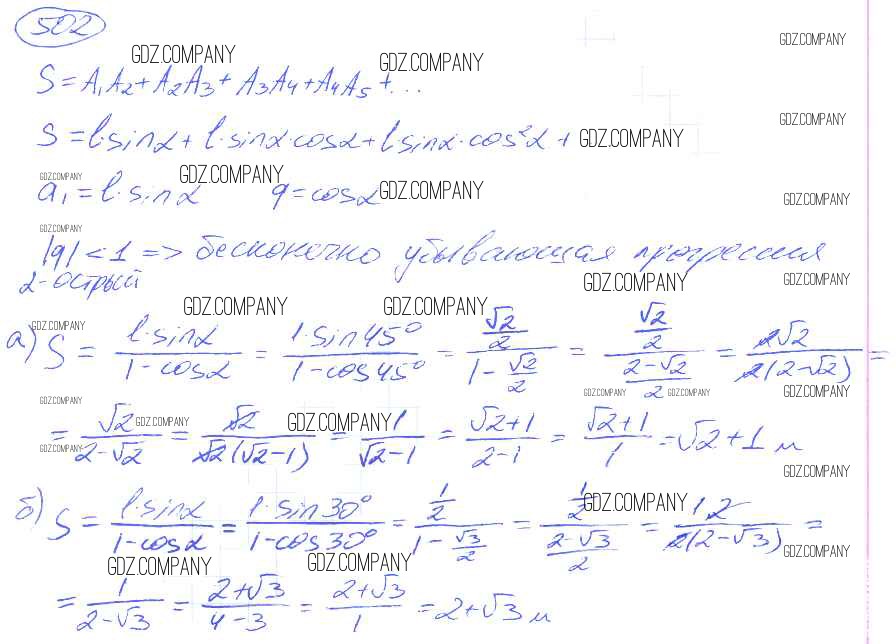 502
GDZ.COMPANY GDZ.COMPANY GDZ.COMPANY
S = A₁A₂ + A₂A₃ + A₃A₄ + A₄A₅ + ...
GDZ.COMPANY
S = l·sinα + l·sinα·cosα + l sinα·cos²α + GDZ.COMPANY
GDZ.COMPANY GDZ.COMPANY GDZ.COMPANY GDZ.COMPANY
a₁ = l·sinα q = cosα
GDZ.COMPANY
|q| < 1 => бесконечно убывающая прогрессия
α - острый GDZ.COMPANY GDZ.COMPANY
GDZ.COMPANY GDZ.COMPANY GDZ.COMPANY
а) S = l·sinα / (1 - cosα) = 1·sin45° / (1 - cos45°) = (√2/2) / (1 - √2/2) = (√2/2) / ((2 - √2)/2) = 2√2 / (2(2 - √2)) =
GDZ.COMPANY GDZ.COMPANY GDZ.COMPANY GDZ.COMPANY
GDZ.COMPANY GDZ.COMPANY
= √2 / (2 - √2) = √2 / (√2(√2 - 1)) = 1 / (√2 - 1) = (√2 + 1) / (2 - 1) = (√2 + 1) / 1 = √2 + 1 м
GDZ.COMPANY GDZ.COMPANY
GDZ.COMPANY
б) S = l·sinα / (1 - cosα) = 1·sin30° / (1 - cos30°) = (1/2) / (1 - √3/2) = (1/2) / ((2 - √3)/2) = 1·2 / (2(2 - √3)) =
GDZ.COMPANY GDZ.COMPANY
GDZ.COMPANY GDZ.COMPANY
= 1 / (2 - √3) = (2 + √3) / (4 - 3) = (2 + √3) / 1 = 2 + √3 м